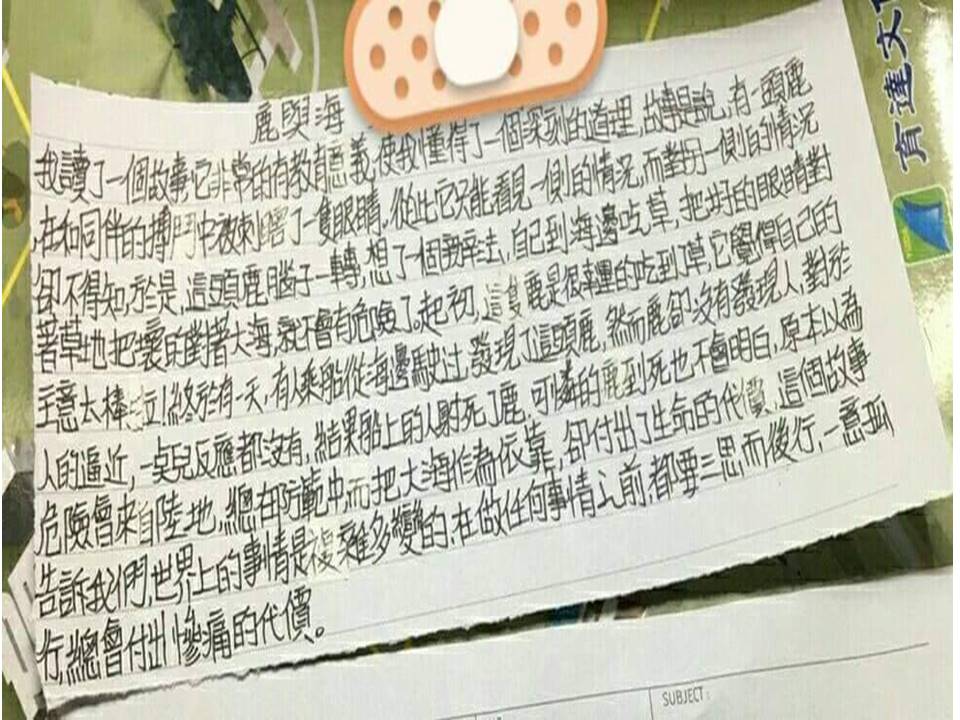 鹿與海
我讀了一個故事,它非常的有教育意義,使我懂得了一個深刻的道理,故事是說,有一頭鹿
,在和同伴的搏鬥中被刺瞎了一隻眼睛,從此它只能看見一側的情況,而對另一側的情況
卻不得知,於是,這頭鹿腦子一轉,想了一個辦法,自己到海邊吃草,把好的眼睛對
著草地,把壞的對著大海,就不會有危險了。起初,這隻鹿是很幸運的吃到了草,它覺得自己的
主意太棒了!終於有一天,有人乘船從海邊駛过,發現了這頭鹿,然而鹿卻沒有發現人,對於
人的逼近,一點兒反應都沒有,結果船上的人射死了鹿,可憐的鹿到死也不會明白,原本以為
危險會來自陸地,總在防範中,而把大海作為依靠,卻付出了生命的代價,這個故事
告訴我們,世界上的事情是複雜多變的,在做任何事情之前,都要三思而後行,一意孤
行,總會付出慘痛的代價。
育達文
SUBJECT: